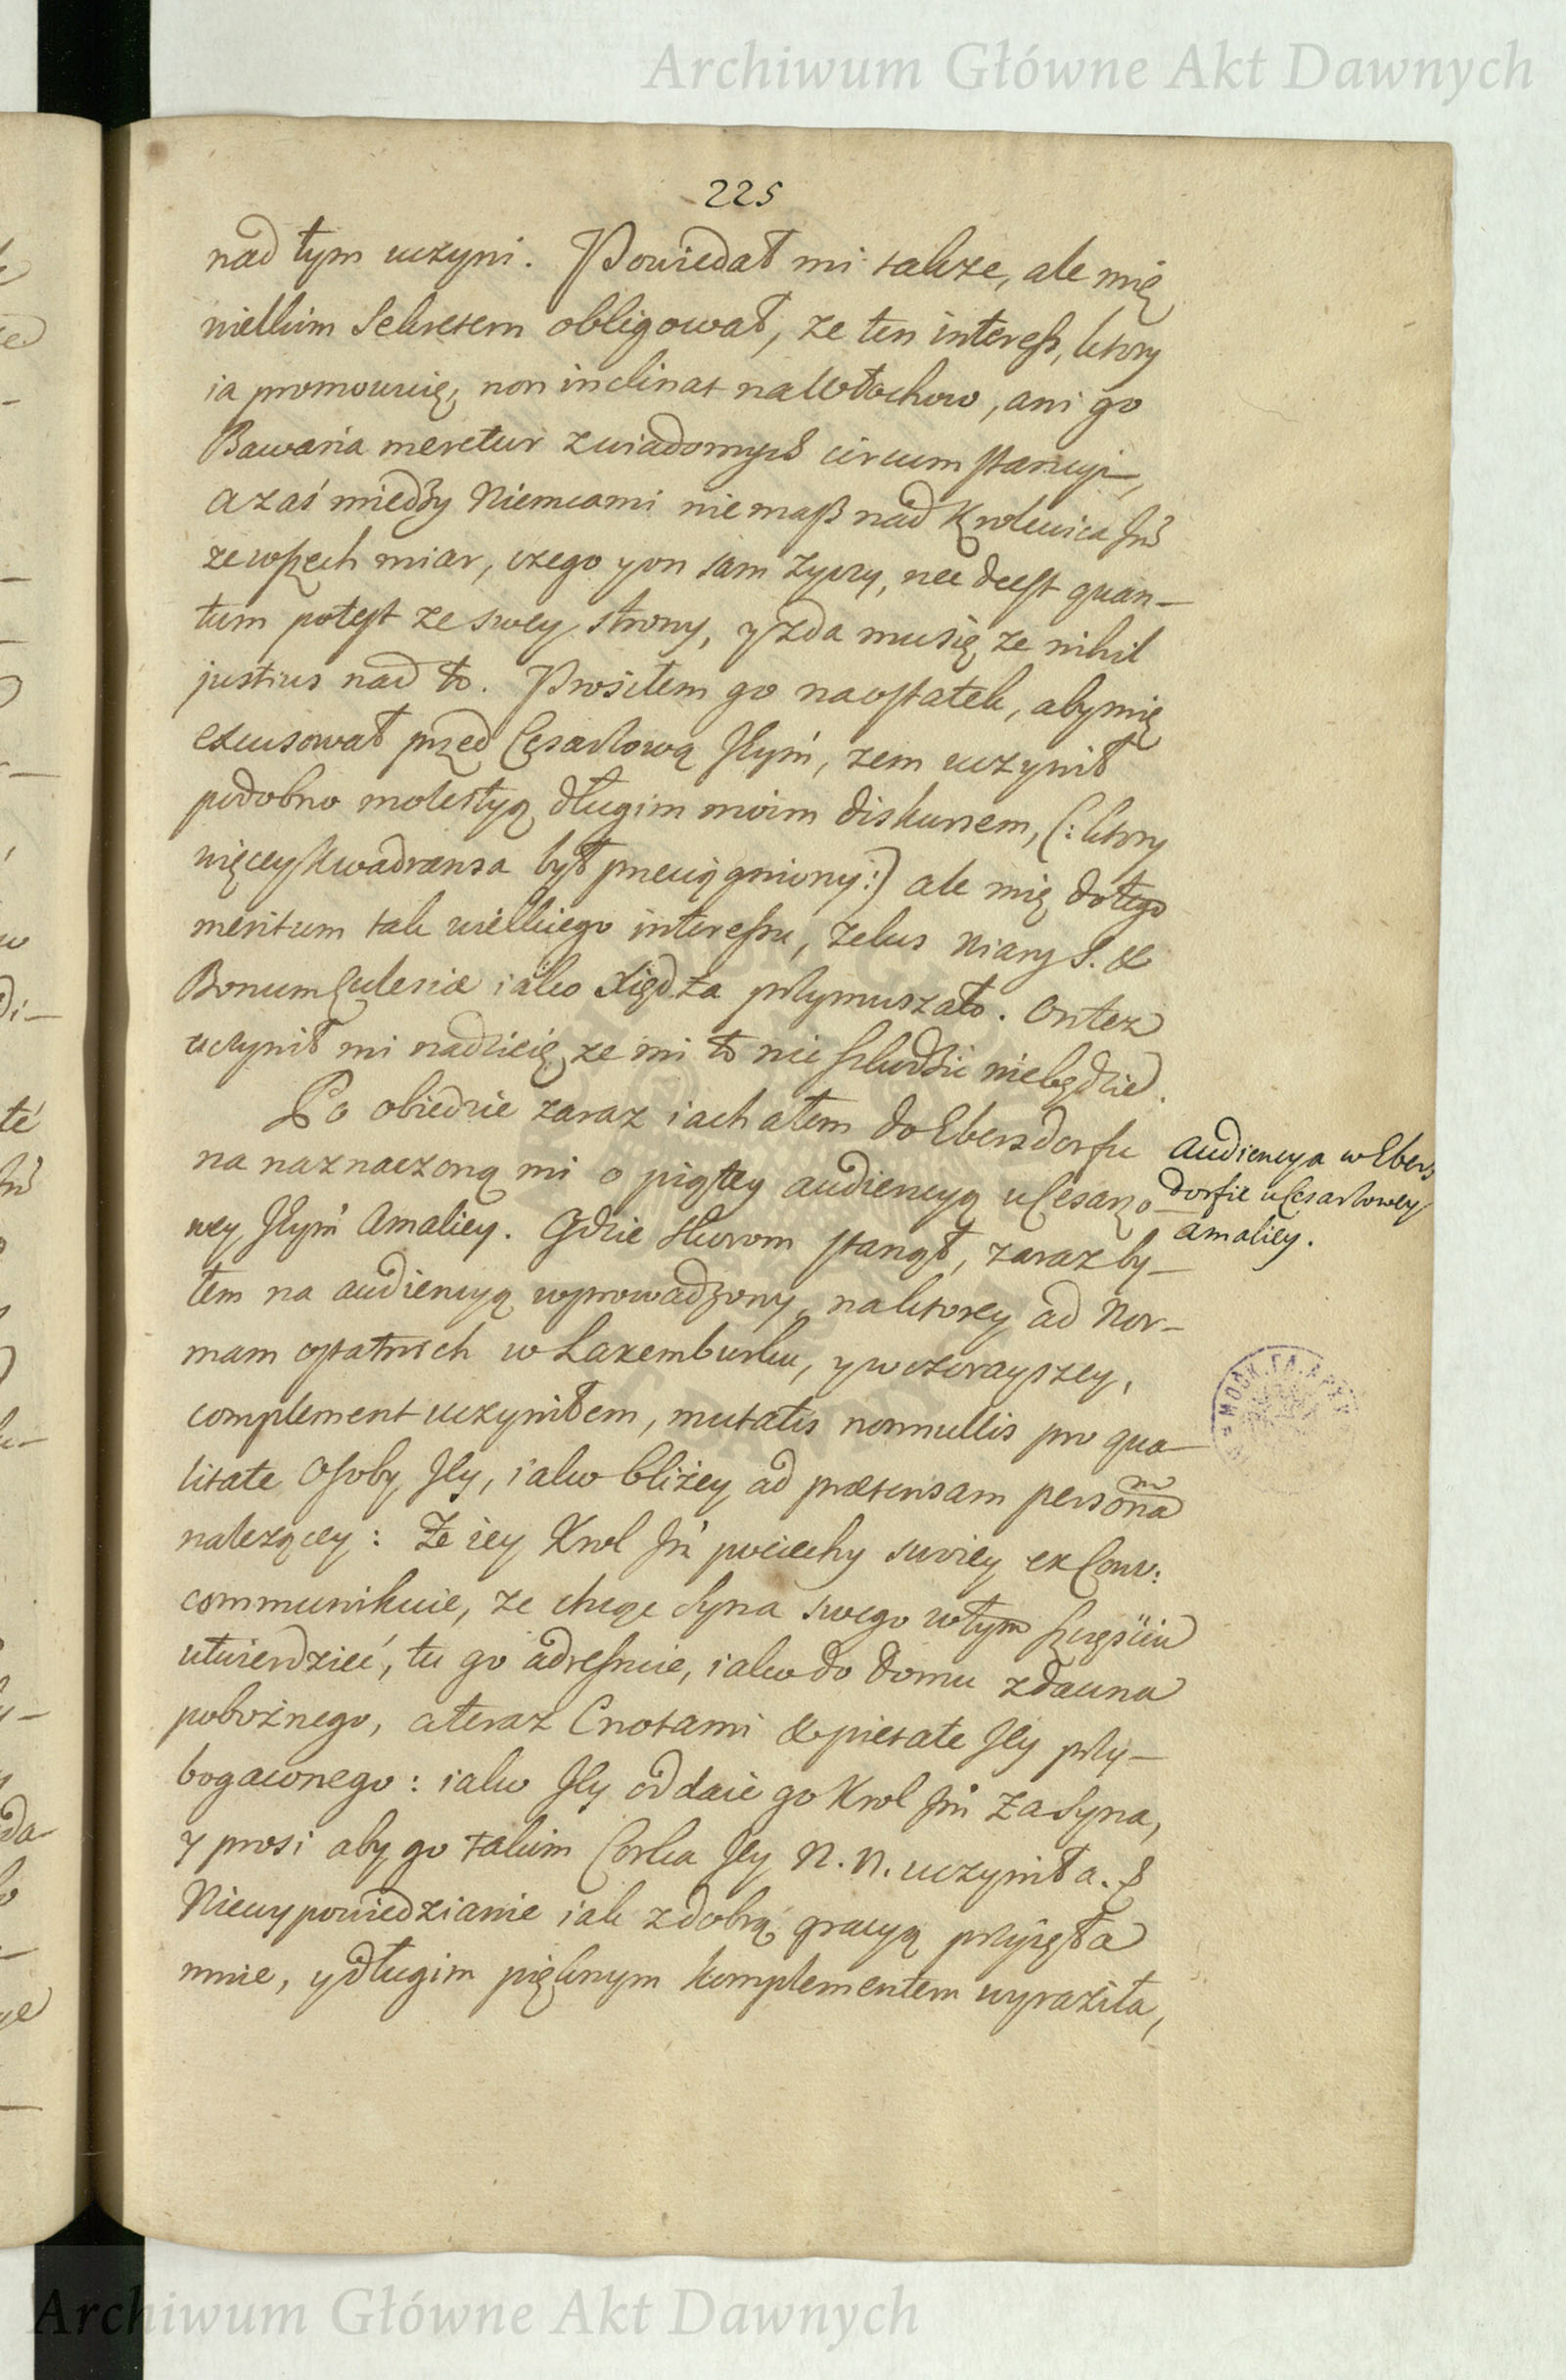 Archiwum Główne Akt Dawnych
225
nad tym uczyni. Powiedał mi takze, ale mię
wielkim Sekretem obligował, ze ten interess, ktory
ia promowuię, non inclinat na Włochow, ani go
Bawaria meretur z wiadomych circumstancyi,
a zaś miedzy Niemcami nie masz nad Krolewica Jm̃
ze wszech miar, czego y on sam zyczy, nec deest quan-
tum potest ze swey strony, y zda mu się, ze nihil
justius nad to. Prosiłem go na ostatek, aby mię
excusował przed Cesarzową Jeym̃, zem uczynił
podobno molestyą długim moim diskursem, (: ktory
więcey kwadransa był przeciągniony :) ale mię do tego
meritum tak wielkiego interessu, zelus Wiary S. &
Bonum Eclesiæ iako Xiędza przymuszało. On tez
uczynił mi nadzieię, ze mi to nie szkodzić niebędzie.
Po obiedzie zaraz iachałem do Ebersdorfu
na naznaczoną mi o piątey audiencyą u Cesarzo-
wey Jeym̃ Amaliey. Gdzie skorom stanął, zaraz by-
łem na audiencyą wprowadzony, na ktorey ad Nor-
mam ostatnich w Laxemburku, y wczorayszey,
complement uczyniłem, mutatis nonnullis pro qua-
litate Osoby Jey, iako bliżey ad prætensam personam
nalezącey: Ze iey Krol Jm̃ pociechy swoiey ex Conv:
communikuie, ze chcąc Syna swego w tym szczęściu
utwierdzieć, tu go adressuie, iako do Domu zdawna
pobożnego, a teraz Cnotami & pietate Jey przy-
bogaconego: iako Jey oddaie go Krol Jm̃ za Syna,
y prosi aby go takim Corka Jey N. N. uczyniła. &
Niewypowiedzianie iak z dobrą gracyą przyięła
mnie, y długim pięknym komplementem wyraziła,
Audiencya w Ebers
dorfie u Cesarzowey
Amaliey.
Archiwum Główne Akt Dawnych